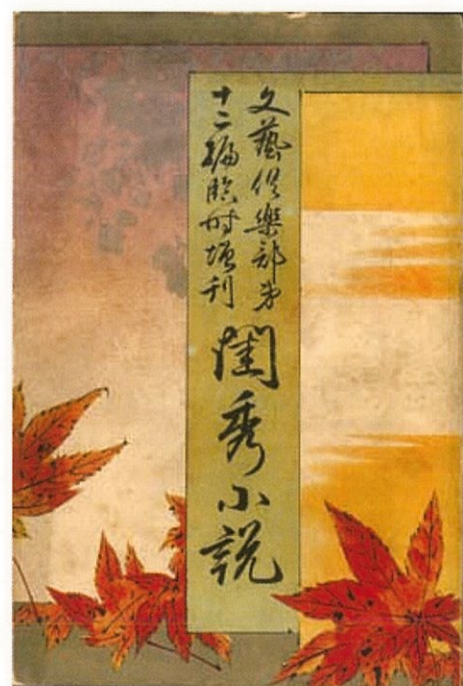 文藝倶樂部第
十二編臨時增刊
閨秀小説